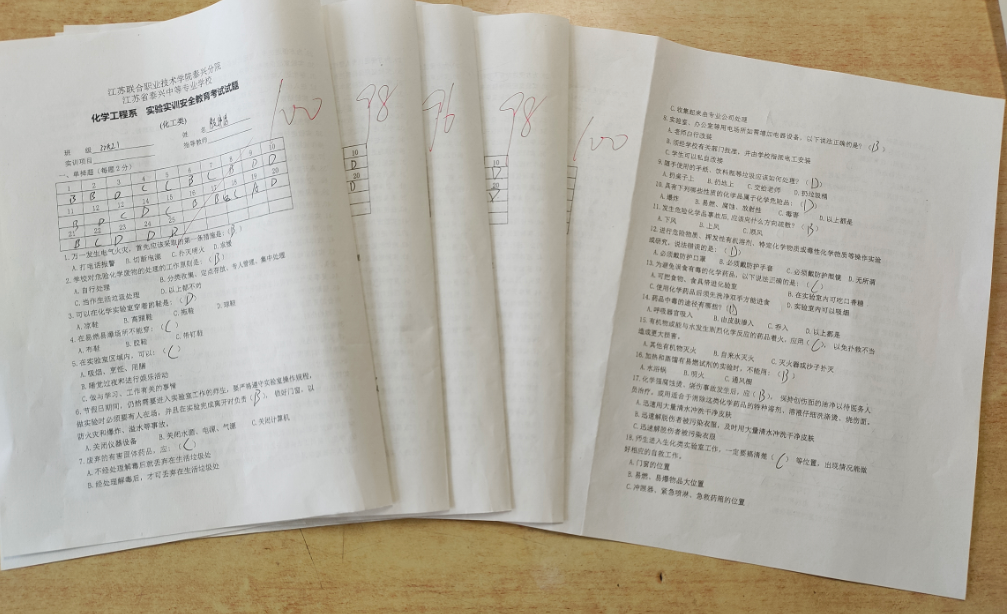 江苏联合职业技术学院泰兴分院
江苏省泰兴中等专业学校
化学工程系 实验实训安全教育考试试题
(化工类)
班 级
姓 名
实训项目
指导教师
一、单择题（每题2分）
1 2 3 4 5 6 7 8 9 10
B B D C C B C B D D
11 12 13 14 15 16 17 18 19 20
B D C D C B B C A D
21 22 23 24 25
B C D D D
1.万一发生电气火灾，首先应该采取的第一条措施是：(B)
A.打电话报警 B.切断电源 C.扑灭明火 D.求援
2.学校对危险化学废物的处理的工作原则是：(B)
A.自行处理 B.分类收集、定点存放、专人管理、集中处理
C.当作生活垃圾处理 D.以上都不对
3.可以在化学实验室穿着的鞋是：(D)
A.凉鞋 B.高跟鞋 C.拖鞋 D.球鞋
4.在易燃易爆场所不能穿：(C)
A.布鞋 B.胶鞋 C.带钉鞋
5.在实验室区域内，可以：(C)
A.吸烟、烹饪、用膳
B.睡觉过夜和进行娱乐活动
C.做与学习、工作有关的事情
6.节假日期间，仍然需要进入实验室工作的师生，要严格遵守实验室操作规程，
做实验时必须要有人在场，并且在实验完成离开时负责(B)，锁好门窗，以
防火灾和爆炸、溢水等事故。
A.关闭仪器设备 B.关闭水源、电源、气源 C.关闭计算机
7.废弃的有害固体药品，应：(C)
A.不经处理解毒后就丢弃在生活垃圾处
B.经处理解毒后，才可丢弃在生活垃圾处
100
10
D
20
D
98
96
10
D
20
D
98
100
C.收集起来由专业公司处理
8.实验室、办公室等用电场所如需增加电器设备，以下说法正确的是：(B)
A.老师自行改装
B.须经学校有关部门批准，并由学校指派电工安装
C.学生可以私自改接
9.随手使用的手纸、饮料瓶等垃圾应该如何处理？(D)
A.扔桌子上 B.扔地上 C.交给老师 D.扔垃圾桶
10.具有下列哪些性质的化学品属于化学危险品：(D)
A.爆炸 B.易燃、腐蚀、放射性 C.毒害 D.以上都是
11.发生危险化学品事故后，应该向什么方向疏散？(B)
A.下风 B.上风 C.顺风
12.进行危险物质、挥发性有机溶剂、特定化学物质或毒性化学物质等操作实验
或研究，说法错误的是：(D)
A.必须戴防护口罩 B.必须戴防护手套 C.必须戴防护眼镜 D.无所谓
13.为避免误食有毒的化学药品，以下说法正确的是：(C)
A.可把食物、食具带进化验室 B.在实验室内可吃口香糖
C.使用化学药品后须先洗净双手方能进食 D.实验室内可以吸烟
14.药品中毒的途径有哪些？(D)
A.呼吸器官吸入 B.由皮肤渗入 C.吞入 D.以上都是
15.有机物或能与水发生剧烈化学反应的药品着火，应用(C)，以免扑救不当
造成更大损害。
A.其他有机物灭火 B.自来水灭火 C.灭火器或沙子扑灭
16.加热和蒸馏有易燃试剂的实验时，不能用：(B)
A.水浴锅 B.明火 C.通风橱
17.化学强腐蚀烫、烧伤事故发生后，应(B)，保持创伤面的洁净以待医务人
员治疗，或用适合于消除这类化学药品的特种溶剂、溶液仔细洗涤烫、烧伤面。
A.迅速用大量清水冲洗干净皮肤
B.迅速解脱伤者被污染衣服，及时用大量清水冲洗干净皮肤
C.迅速解脱伤者被污染衣服
18.师生进入生化类实验室工作，一定要搞清楚(C)等位置，出现情况能做
好相应的自救工作。
A.门窗的位置
B.易燃、易爆物品大位置
C.冲洗器、紧急喷淋、急救药箱的位置